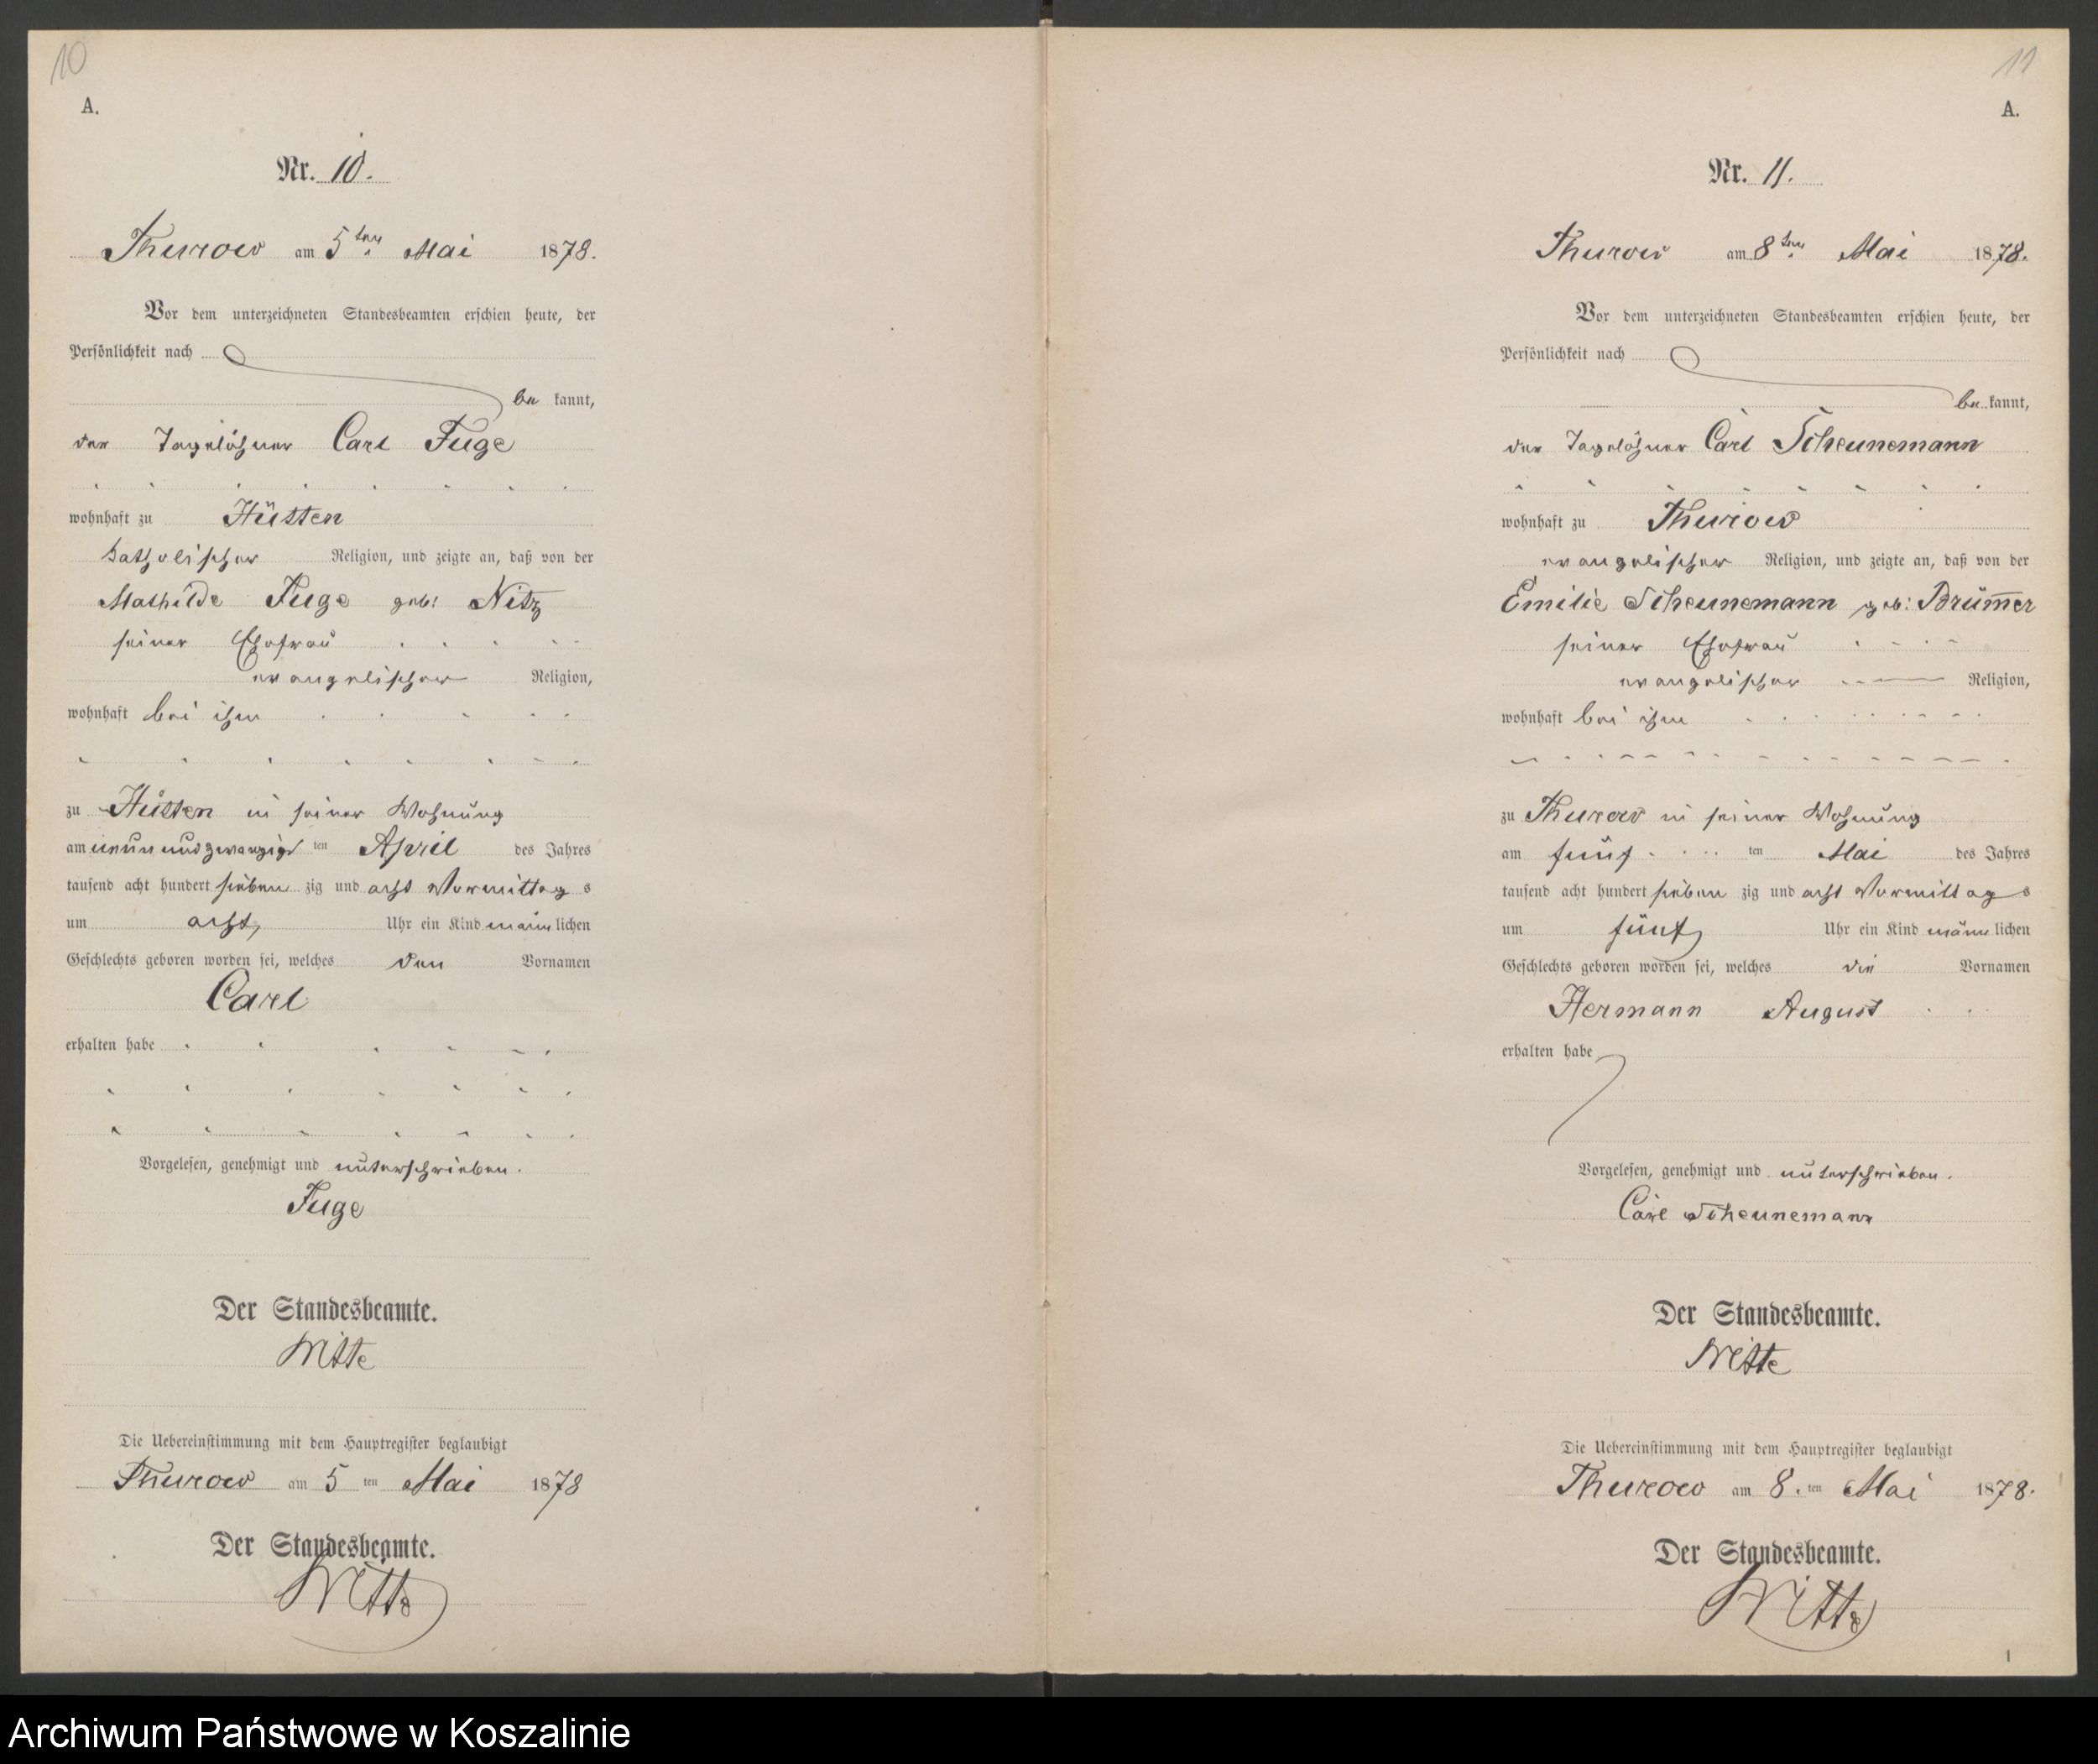 10
A.
Nr. 10.
Thurow am 5ten Mai 1878.
Vor dem unterzeichneten Standesbeamten erschien heute, der
Persönlichkeit nach
be kannt,
der Tagelöhner Carl Fuge
wohnhaft zu Hütten
katholischer Religion, und zeigte an, daß von der
Mathilde Fuge geb: Nitz
seiner Ehefrau
evangelischer Religion,
wohnhaft bei ihm
zu Hütten in seiner Wohnung
am neun und zwanzig ten April des Jahres
tausend acht hundert sieben zig und acht Vormittag s
um acht Uhr ein Kind männ lichen
Geschlechts geboren worden sei, welches den Vornamen
Carl
erhalten habe
Vorgelesen, genehmigt und unterschrieben.
Fuge
Der Standesbeamte.
Witte
Die Uebereinstimmung mit dem Hauptregister beglaubigt
Thurow am 5 ten Mai 1878
Der Standesbeamte.
Witte
11
A.
Nr. 11.
Thurow am 8ten Mai 1878.
Vor dem unterzeichneten Standesbeamten erschien heute, der
Persönlichkeit nach
be kannt,
der Tagelöhner Carl Scheunemann
wohnhaft zu Thurow
evangelischer Religion, und zeigte an, daß von der
Emilie Scheunemann geb: Brüm̅er
seiner Ehefrau
evangelischer Religion,
wohnhaft bei ihm
zu Thurow in seiner Wohnung
am fünf ten Mai des Jahres
tausend acht hundert sieben zig und acht Vormittag s
um fünf Uhr ein Kind männ lichen
Geschlechts geboren worden sei, welches die Vornamen
Hermann August
erhalten habe
Vorgelesen, genehmigt und unterschrieben.
Carl Scheunemann
Der Standesbeamte.
Witte
Die Uebereinstimmung mit dem Hauptregister beglaubigt
Thurow am 8. ten Mai 1878.
Der Standesbeamte.
Witte
1
Archiwum Państwowe w Koszalinie